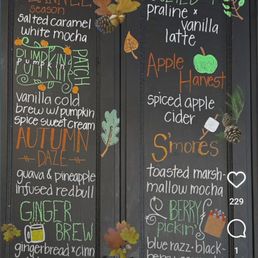 season
salted caramel
white mocha
PUMPKIN
PATCH
vanilla cold
brew w/ pumpkin
spice sweet cream
AUTUMN
DAZE
guava & pineapple
infused red bull
GINGER
BREW
gingerbread + cinn
praline x
vanilla
latte
Apple
Harvest
spiced apple
cider
S'mores
toasted marsh-
mallow mocha
BERRY
pickin'
blue razz - black-
229
1